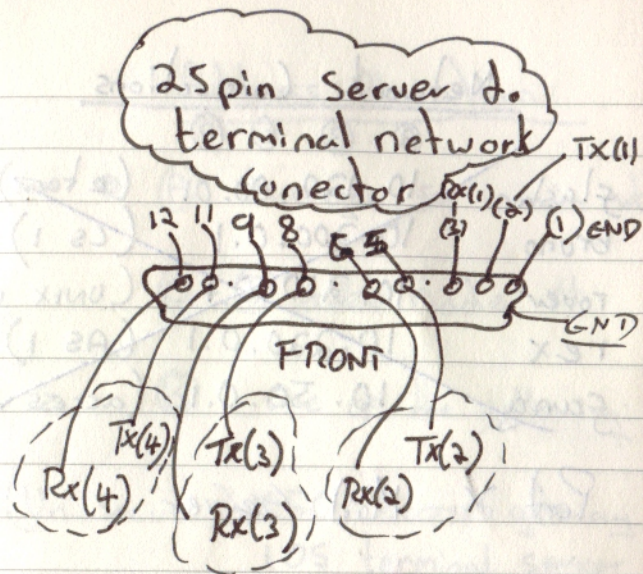 25pin Server to
terminal network
Conector
TX(1)
RX(1)
12 11 9 8 6 5 (3) (2) (1) GND
GND
FRONT
Tx(4) Tx(3) Tx(2)
Rx(4) Rx(3) Rx(2)